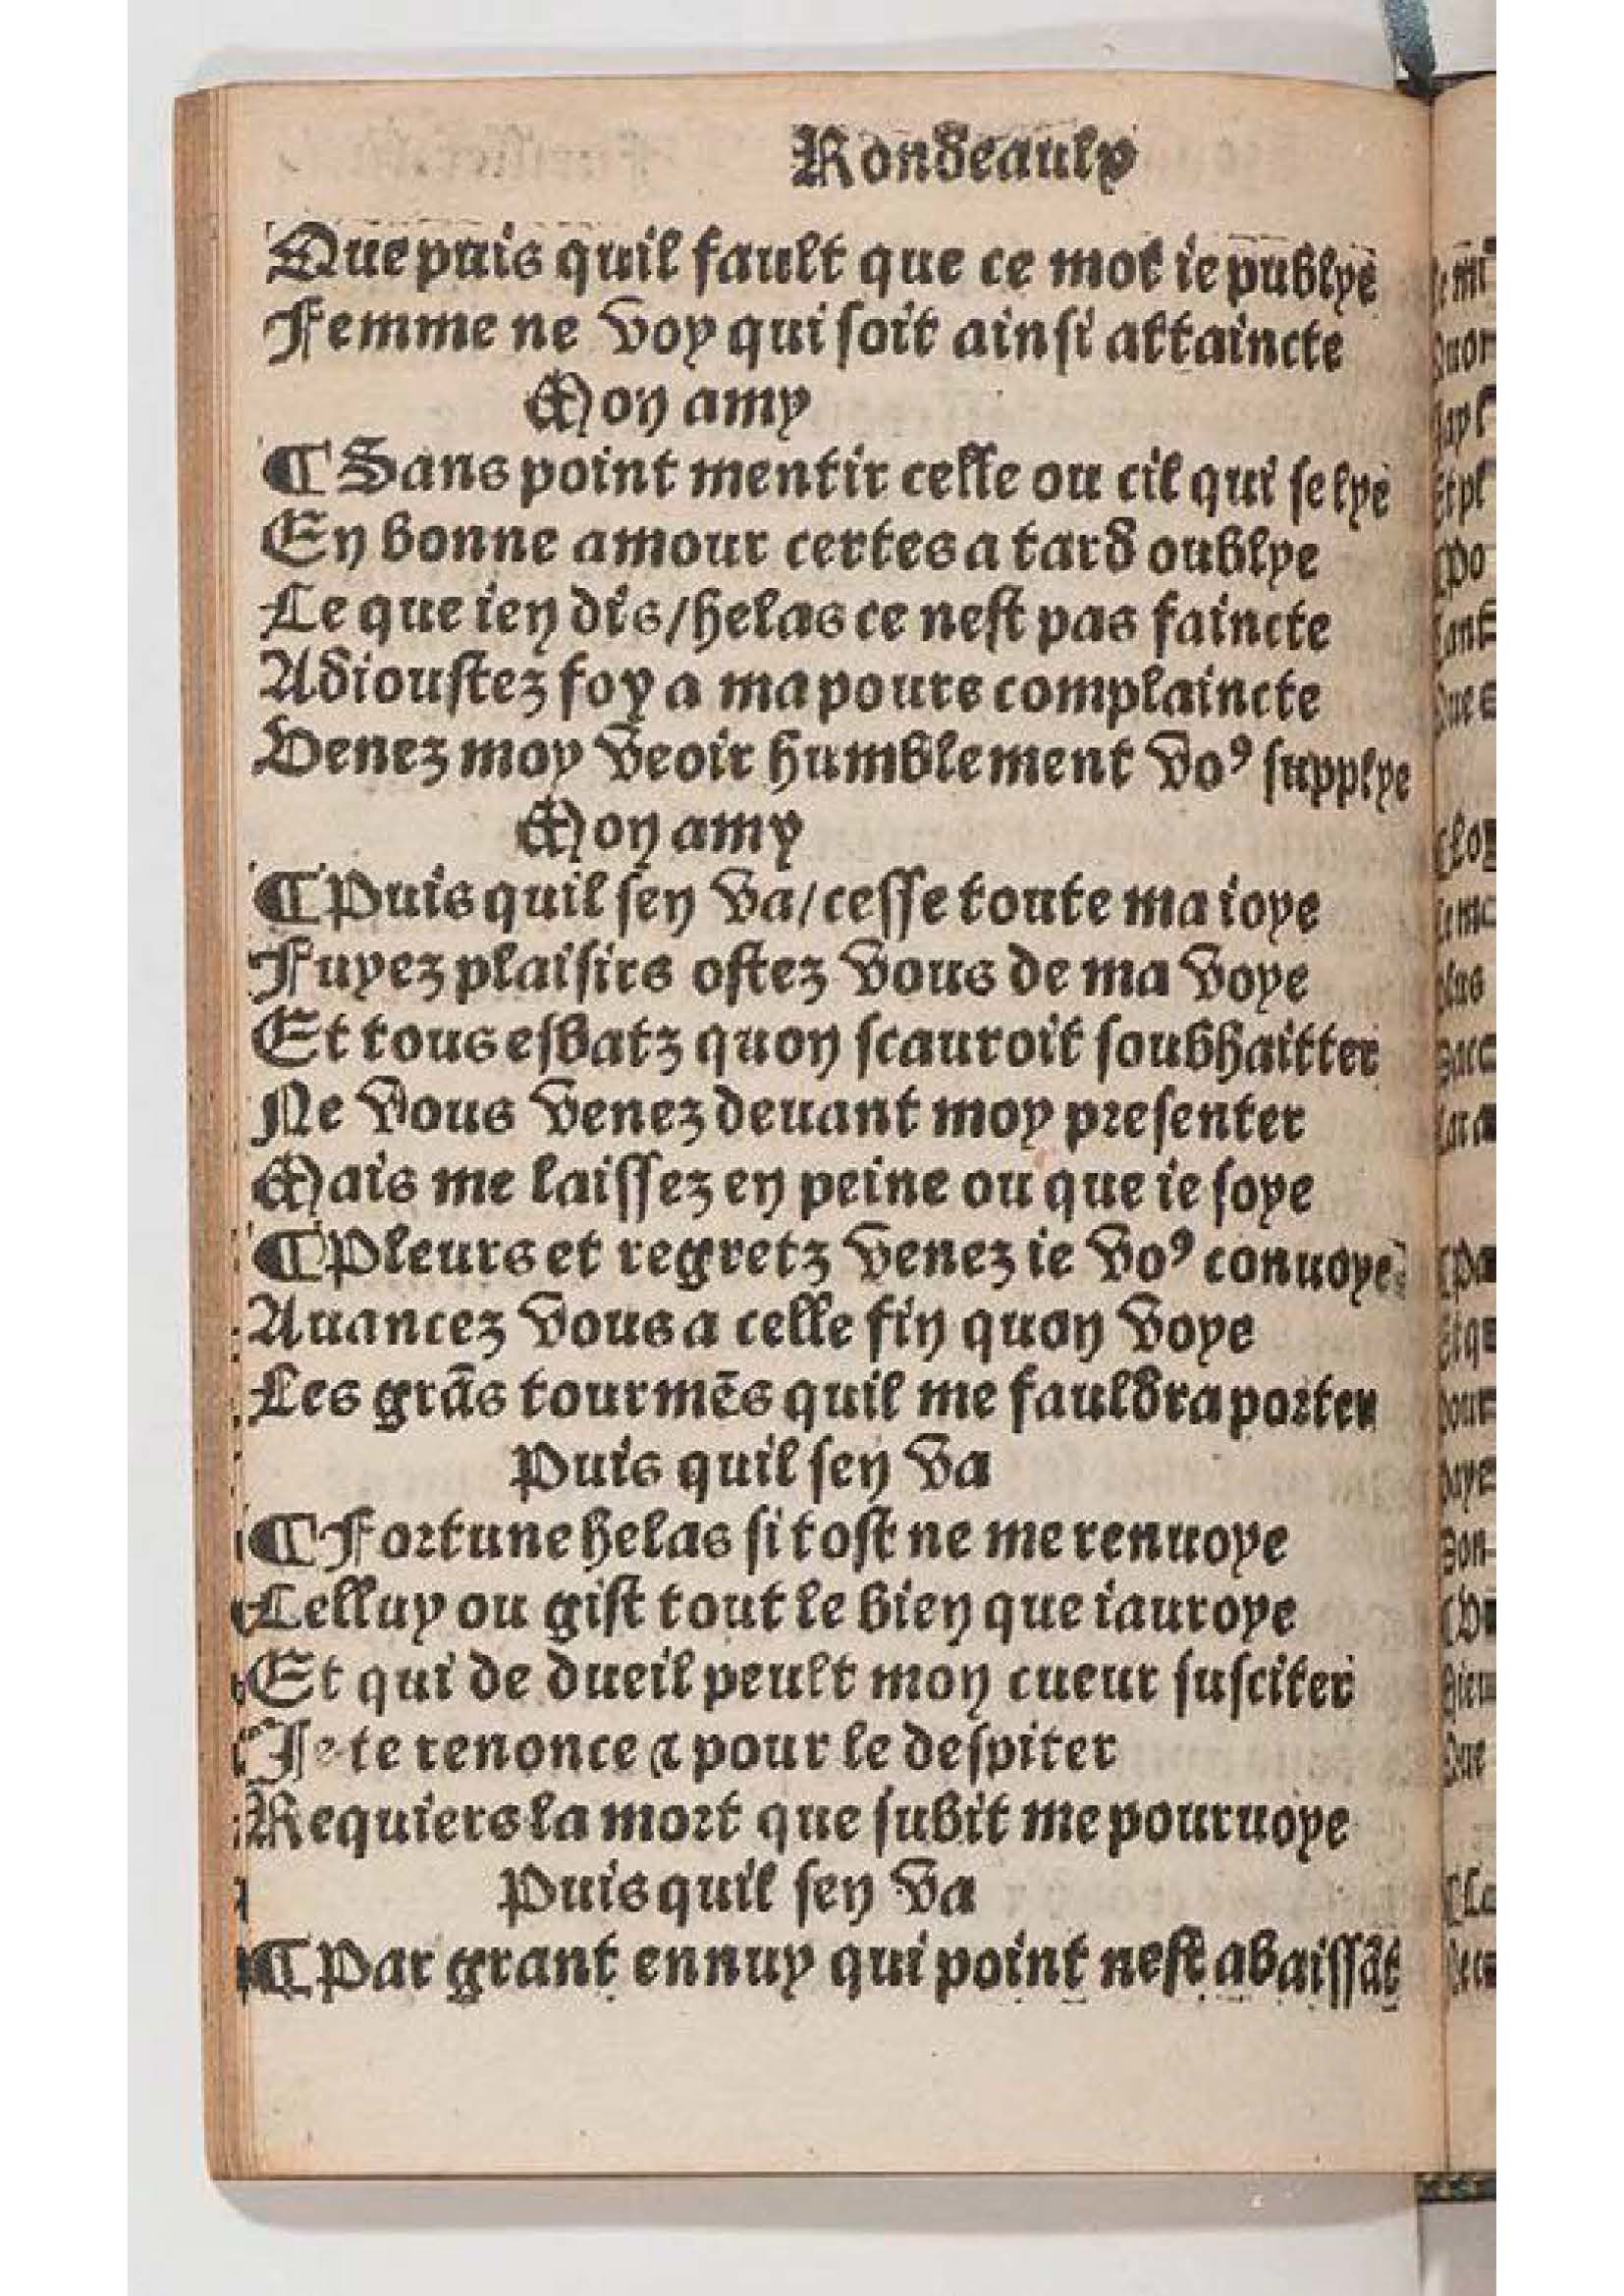 Rondeaulx
Que puis quil fault que ce mot ie publye
Femme ne voy qui soit ainsi attaincte
Mon amy
¶ Sans point mentir celle ou cil qui se lye
En bonne amour certes a tard oublye
Ce que ien dis / helas ce nest pas faincte
Adioustez foy a ma poure complaincte
Venez moy veoir humblement voꝰ supplye
Mon amy
¶ Puis quil sen va / cesse toute ma ioye
Fuyez plaisirs ostez vous de ma voye
Et tous esbatz quon scauroit soubhaitter
Ne vous venez deuant moy presenter
Mais me laissez en peine ou que ie soye
¶ Pleurs et regretz venez ie voꝰ conuoye
Auancez vous a celle fin quon voye
Les grãs tourmẽs quil me fauldra porter
Puis quil sen va
¶ Fortune helas si tost ne me renuoye
Celluy ou gist tout le bien que iauroye
Et qui de dueil peult mon cueur susciter
Je te renonce ⁊ pour le despiter
Requiers la mort que subit me pouruoye
Puis quil sen va
¶ Par grant ennuy qui point nest abaissãt